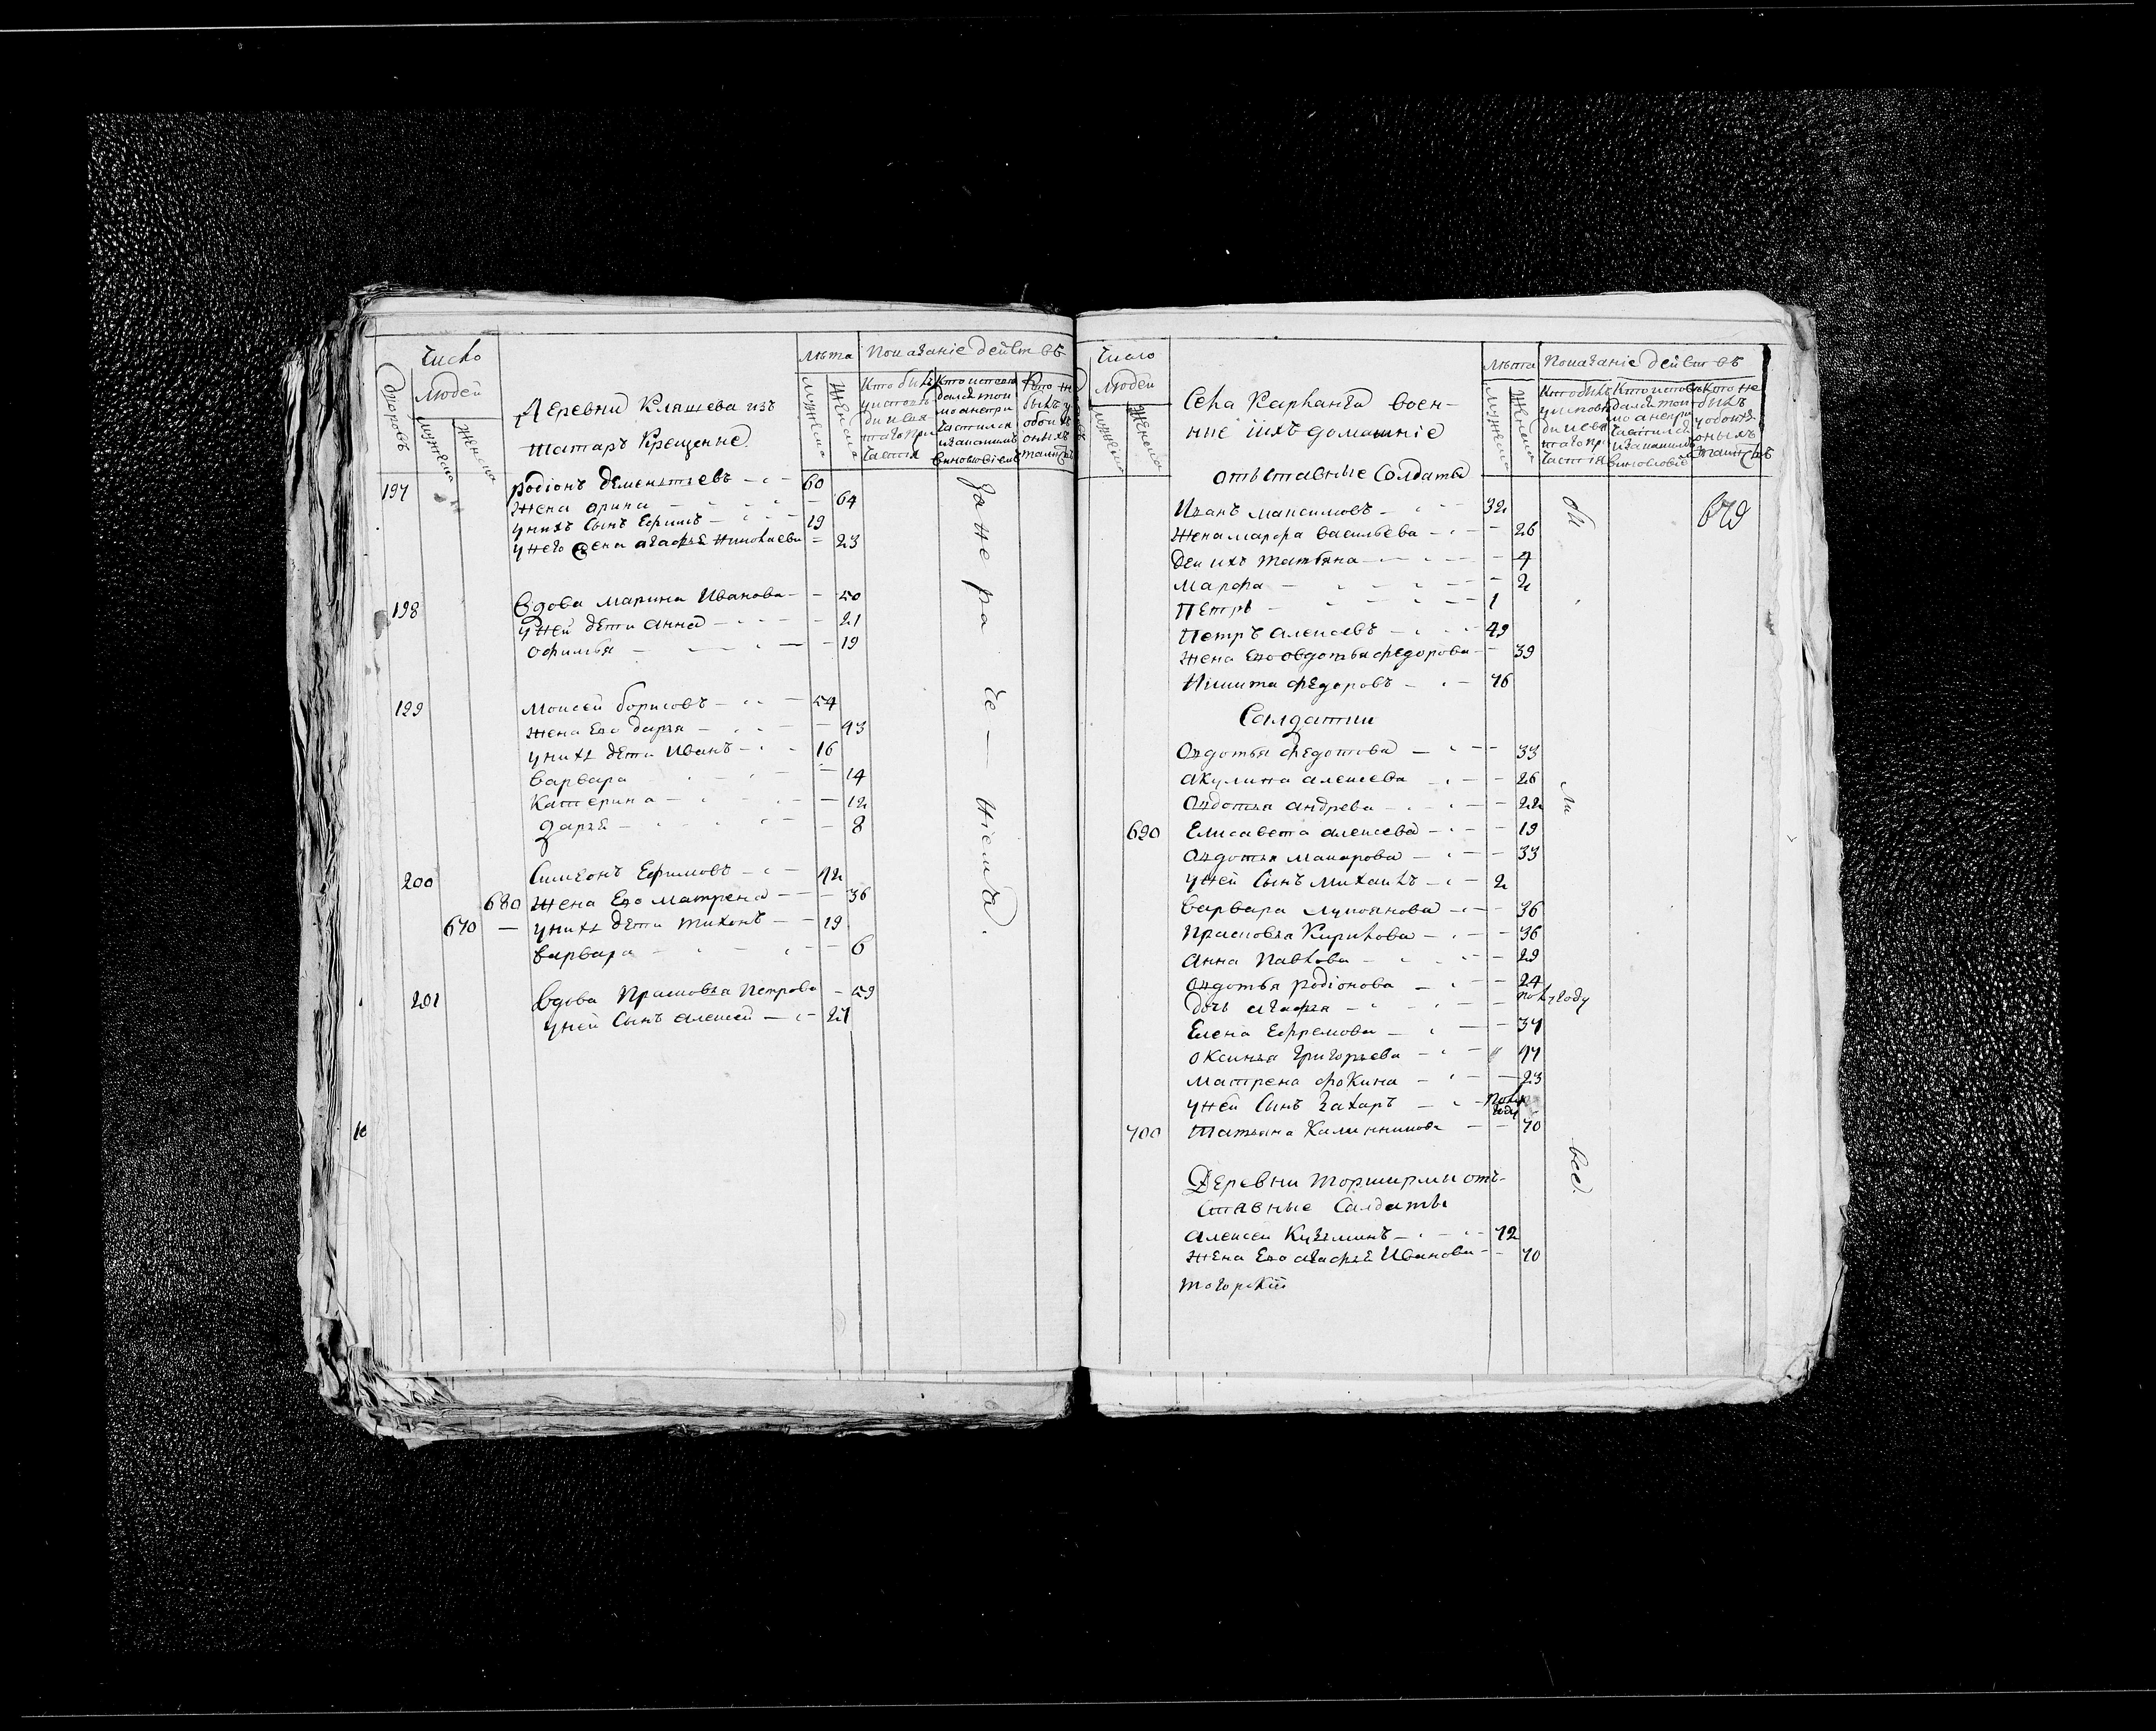 Число
людей
дворовъ
мужеска
женска
Деревни Кляшева изъ
татаръ Крещение
лѣта
мужеска
женска
Показаніе действъ
Кто былъ у исповѣди и святаго причастія
197 родіонъ дементьевъ 60
жена орина 64
у нихъ сынъ Ефимъ 19
у него жена агафья Николаева 23
198 Вдова Марина Иванова 50
у ней дети анна 21
Офимья 19
199 Моисей борисовъ 54
жена Его дарья 43
у нихъ дети Иванъ 16
варвара 14
Катерина 12
дарья 8
200 Симеонъ Ефимовъ 42
680 жена Его матрена 36
670 у нихъ дети тихонъ 19
варвара 6
201 Вдова Прасковья Петрова 59
у ней сынъ алексей 27
За нера че нiемъ
Число
людей
мужеска
женска
Села Карланги воен-
ние ихъ домашніе
отъставные Солдаты
лѣта
мужеска
женска
Показаніе действъ
Иванъ максимовъ 32
жена марфа васильева 26
дети ихъ татьяна 4
марфа 2
Петръ 1
Петръ алексеевъ 49
жена Его овдотья федорова 39
Никита федоровъ 76
Салдатки
Овдотья федотова 33
акулина алексеева 26
Овдотья андрева 22
690 Елисавета алексеева 19
Овдотья макарова 33
у ней сынъ михаилъ 2
варвара лукоянова 36
Прасковья Кирилова 36
анна Павлова 29
Овдотья родіонова 24
дочь агафья полугоду
Елена Ефремова 37
Оксинья григорьева 47
матрена фокина 23
у ней сынъ захаръ полугоду
700 татьяна Калинникова 70
Деревни торширми отъ-
ставные Салдаты
алексеи Кузминъ 72
жена Его агафья Иванова 70